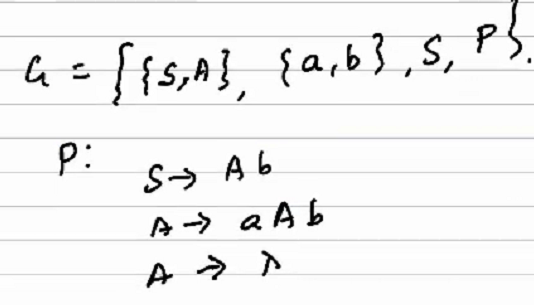 G = {{S,A}, {a,b}, S, P}.
P: S → Ab
A → aAb
A → λ